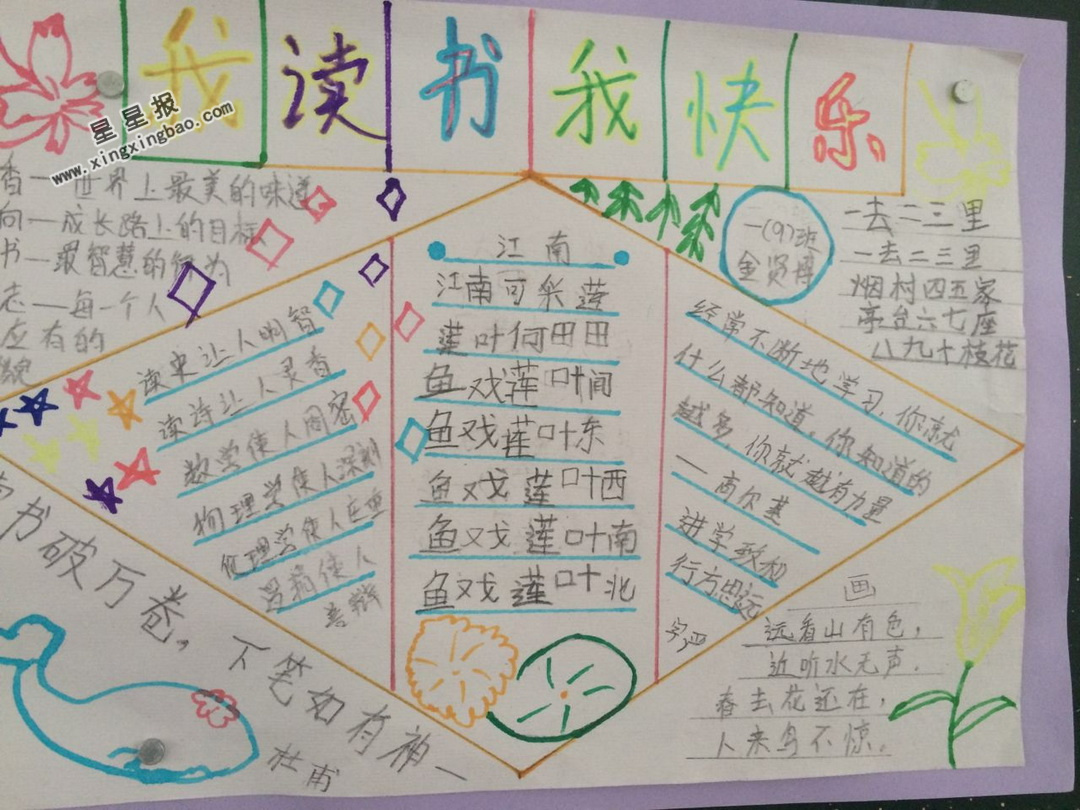 我读书我快乐
星星报
www.xingxingbao.com
香一世界上最美的味道
向一成长路上的目标
书一最智慧的行为
志一每一个人
应有的
貌
读史让人明智
读诗让人灵秀
数学使人周密
物理学使人深刻
伦理学使人庄重
逻辑使人
善辩
江南
江南可采莲
莲叶何田田
鱼戏莲叶间
鱼戏莲叶东
鱼戏莲叶西
鱼戏莲叶南
鱼戏莲叶北
一(9)班
金贤博
一去二三里
一去二三里
烟村四五家
亭台六七座
八九十枝花
经常不断地学习,你就
什么都知道,你知道的
越多,你就越有力量
——高尔基
进学致和
行方思远
书破万卷,下笔如有神一
杜甫
画
远看山有色,
近听水无声.
春去花还在,
人来鸟不惊.